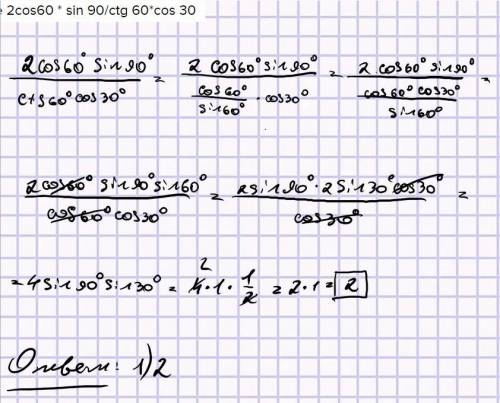 e 2cos60 * sin 90/ctg 60*cos 30
2cos60° sin90° / ctg60° cos30° = 2 cos60° sin90° / (cos60° / sin60° · cos30°) = 2 cos60° sin90° / (cos60° cos30° / sin60°) =
2cos60° sin90° sin60° / cos60° cos30° = 2sin90° · 2sin30° cos30° / cos30° =
= 4sin90° sin30° = 4 2 · 1 · 1/2 = 2·1 = 2
Ответ: 1) 2